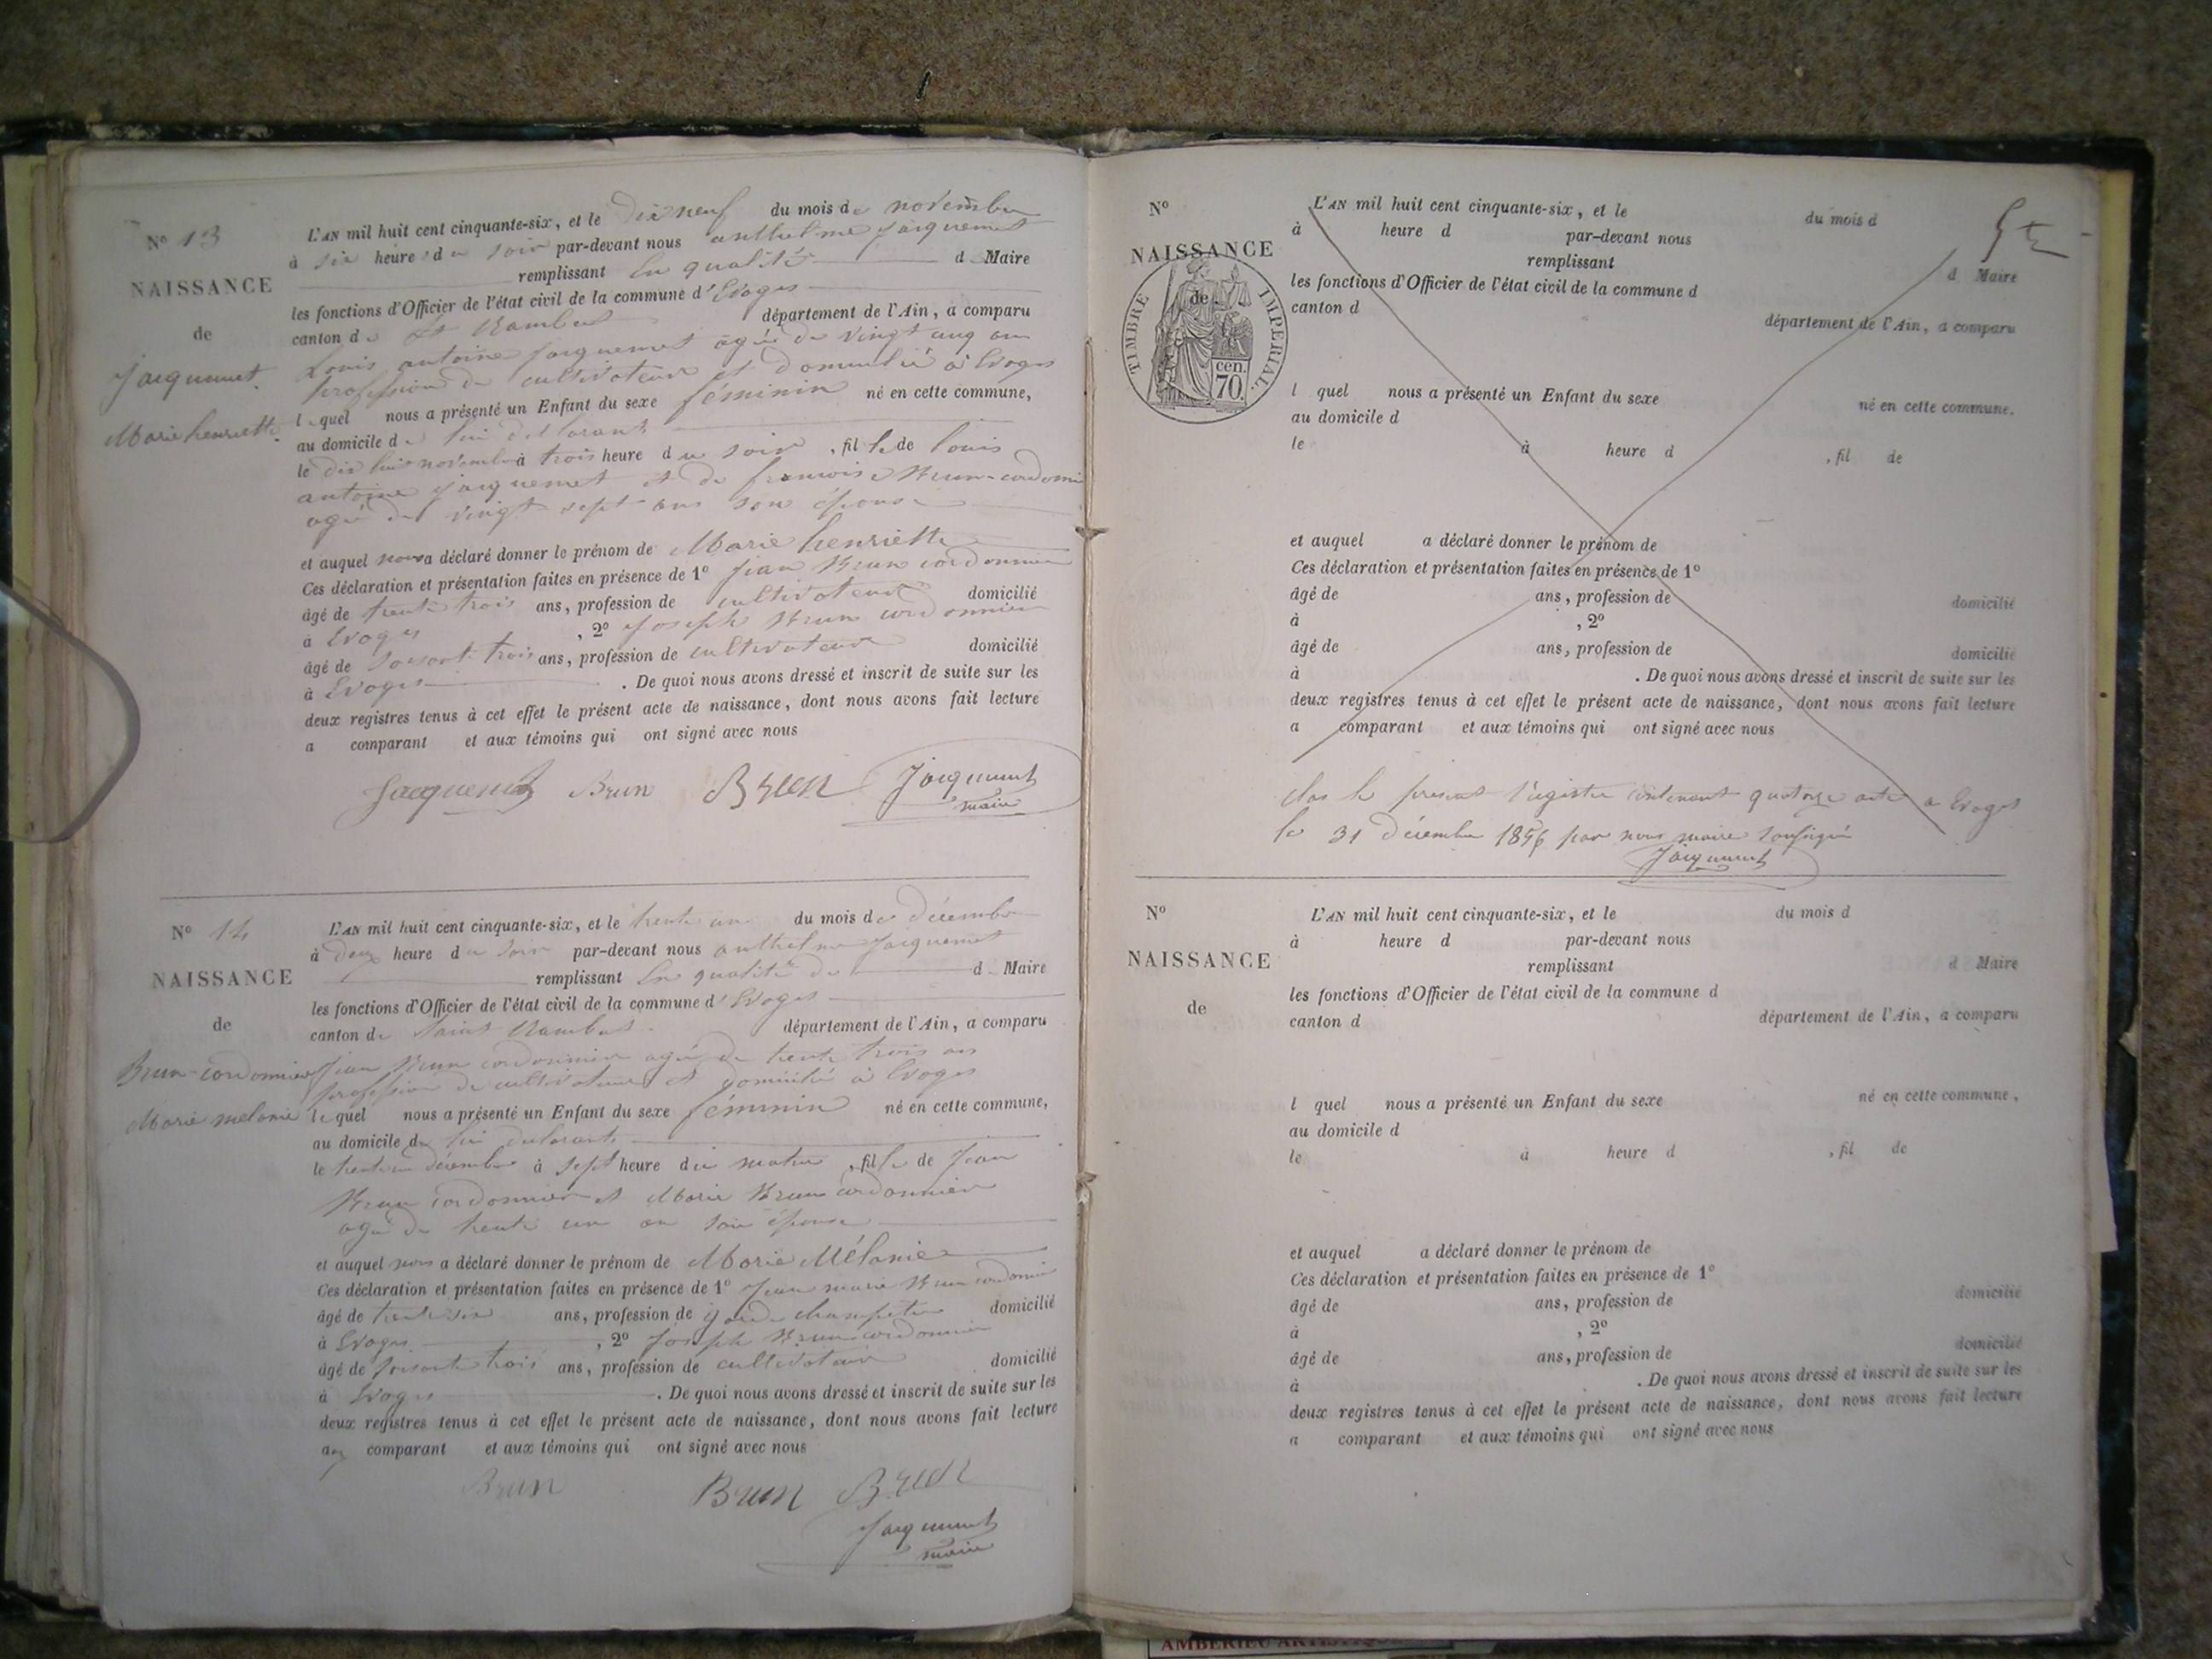 N° 13
NAISSANCE
de
Jacquemet
Marie henriette
L'AN mil huit cent cinquante-six, et le dix neuf du mois de novembre
à six heures du soir par-devant nous anthelme Jacquemet
remplissant en qualité d Maire
les fonctions d'Officier de l'état civil de la commune d'Evoges
canton de St Rambert département de l'Ain, a comparu
Louis antoine Jacquemet agé de vingt cinq ans
profession de cultivateur et domicilié à Evoges
lequel nous a présenté un Enfant du sexe féminin né en cette commune,
au domicile de lui déclarant
le dix huit novembre à trois heure du soir, fille de louis
antoine Jacquemet et de francoise Brun-cordonnier
agé de vingt sept ans son épouse
et auquel nous a déclaré donner le prénom de Marie henriette
Ces déclaration et présentation faites en présence de 1° Jean Brun cordonnier
âgé de trente trois ans, profession de cultivateur domicilié
à Evoges, 2° Joseph Brun cordonnier
âgé de soisante trois ans, profession de cultivateur domicilié
à Evoges. De quoi nous avons dressé et inscrit de suite sur les
deux registres tenus à cet effet le présent acte de naissance, dont nous avons fait lecture
a comparant et aux témoins qui ont signé avec nous
Jacquemet Brun Brun Jacquemet
maire
N° 14
NAISSANCE
de
Brun-cordonnier
Marie melanie
L'AN mil huit cent cinquante-six, et le trente un du mois de décembre
à deux heure du soir par-devant nous anthelme Jacquemet
remplissant en qualité de d Maire
les fonctions d'Officier de l'état civil de la commune d'Evoges
canton de Saint Rambert département de l'Ain, a comparu
Jean Brun cordonnier agé de trente trois ans
profession de cultivateur et domicilié à Evoges
lequel nous a présenté un Enfant du sexe féminin né en cette commune,
au domicile de lui déclarant
le trente un décembre à sept heure du matin, fille de Jean
Brun cordonnier et Marie Brun cordonnier
agé de trente un an son épouse
et auquel nous a déclaré donner le prénom de Marie Mélanie
Ces déclaration et présentation faites en présence de 1° Jean marie Brun cordonnier
âgé de trente six ans, profession de garde champêtre domicilié
à Evoges, 2° Joseph Brun cordonnier
âgé de soisante trois ans, profession de cultivateur domicilié
à Evoges. De quoi nous avons dressé et inscrit de suite sur les
deux registres tenus à cet effet le présent acte de naissance, dont nous avons fait lecture
aux comparant et aux témoins qui ont signé avec nous
Brun Brun Brun
Jacquemet
maire
N°
NAISSANCE
de
TIMBRE IMPERIAL.
cen.
70.
L'AN mil huit cent cinquante-six, et le du mois d
à heure d par-devant nous
remplissant d Maire
les fonctions d'Officier de l'état civil de la commune d
canton d département de l'Ain, a comparu
l quel nous a présenté un Enfant du sexe né en cette commune.
au domicile d
le à heure d , fil de
et auquel a déclaré donner le prénom de
Ces déclaration et présentation faites en présence de 1°
âgé de ans, profession de domicilié
à , 2°
âgé de ans, profession de domicilié
à . De quoi nous avons dressé et inscrit de suite sur les
deux registres tenus à cet effet le présent acte de naissance, dont nous avons fait lecture
a comparant et aux témoins qui ont signé avec nous
clos le présent régistre contenant quatorze acte a Evoges
le 31 décembre 1856 par nous maire soussigné
Jacquemet
N°
NAISSANCE
de
L'AN mil huit cent cinquante-six, et le du mois d
à heure d par-devant nous
remplissant d Maire
les fonctions d'Officier de l'état civil de la commune d
canton d département de l'Ain, a comparu
l quel nous a présenté un Enfant du sexe né en cette commune,
au domicile d
le à heure d , fil de
et auquel a déclaré donner le prénom de
Ces déclaration et présentation faites en présence de 1°
âgé de ans, profession de domicilié
à , 2°
âgé de ans, profession de domicilié
à . De quoi nous avons dressé et inscrit de suite sur les
deux registres tenus à cet effet le présent acte de naissance, dont nous avons fait lecture
a comparant et aux témoins qui ont signé avec nous